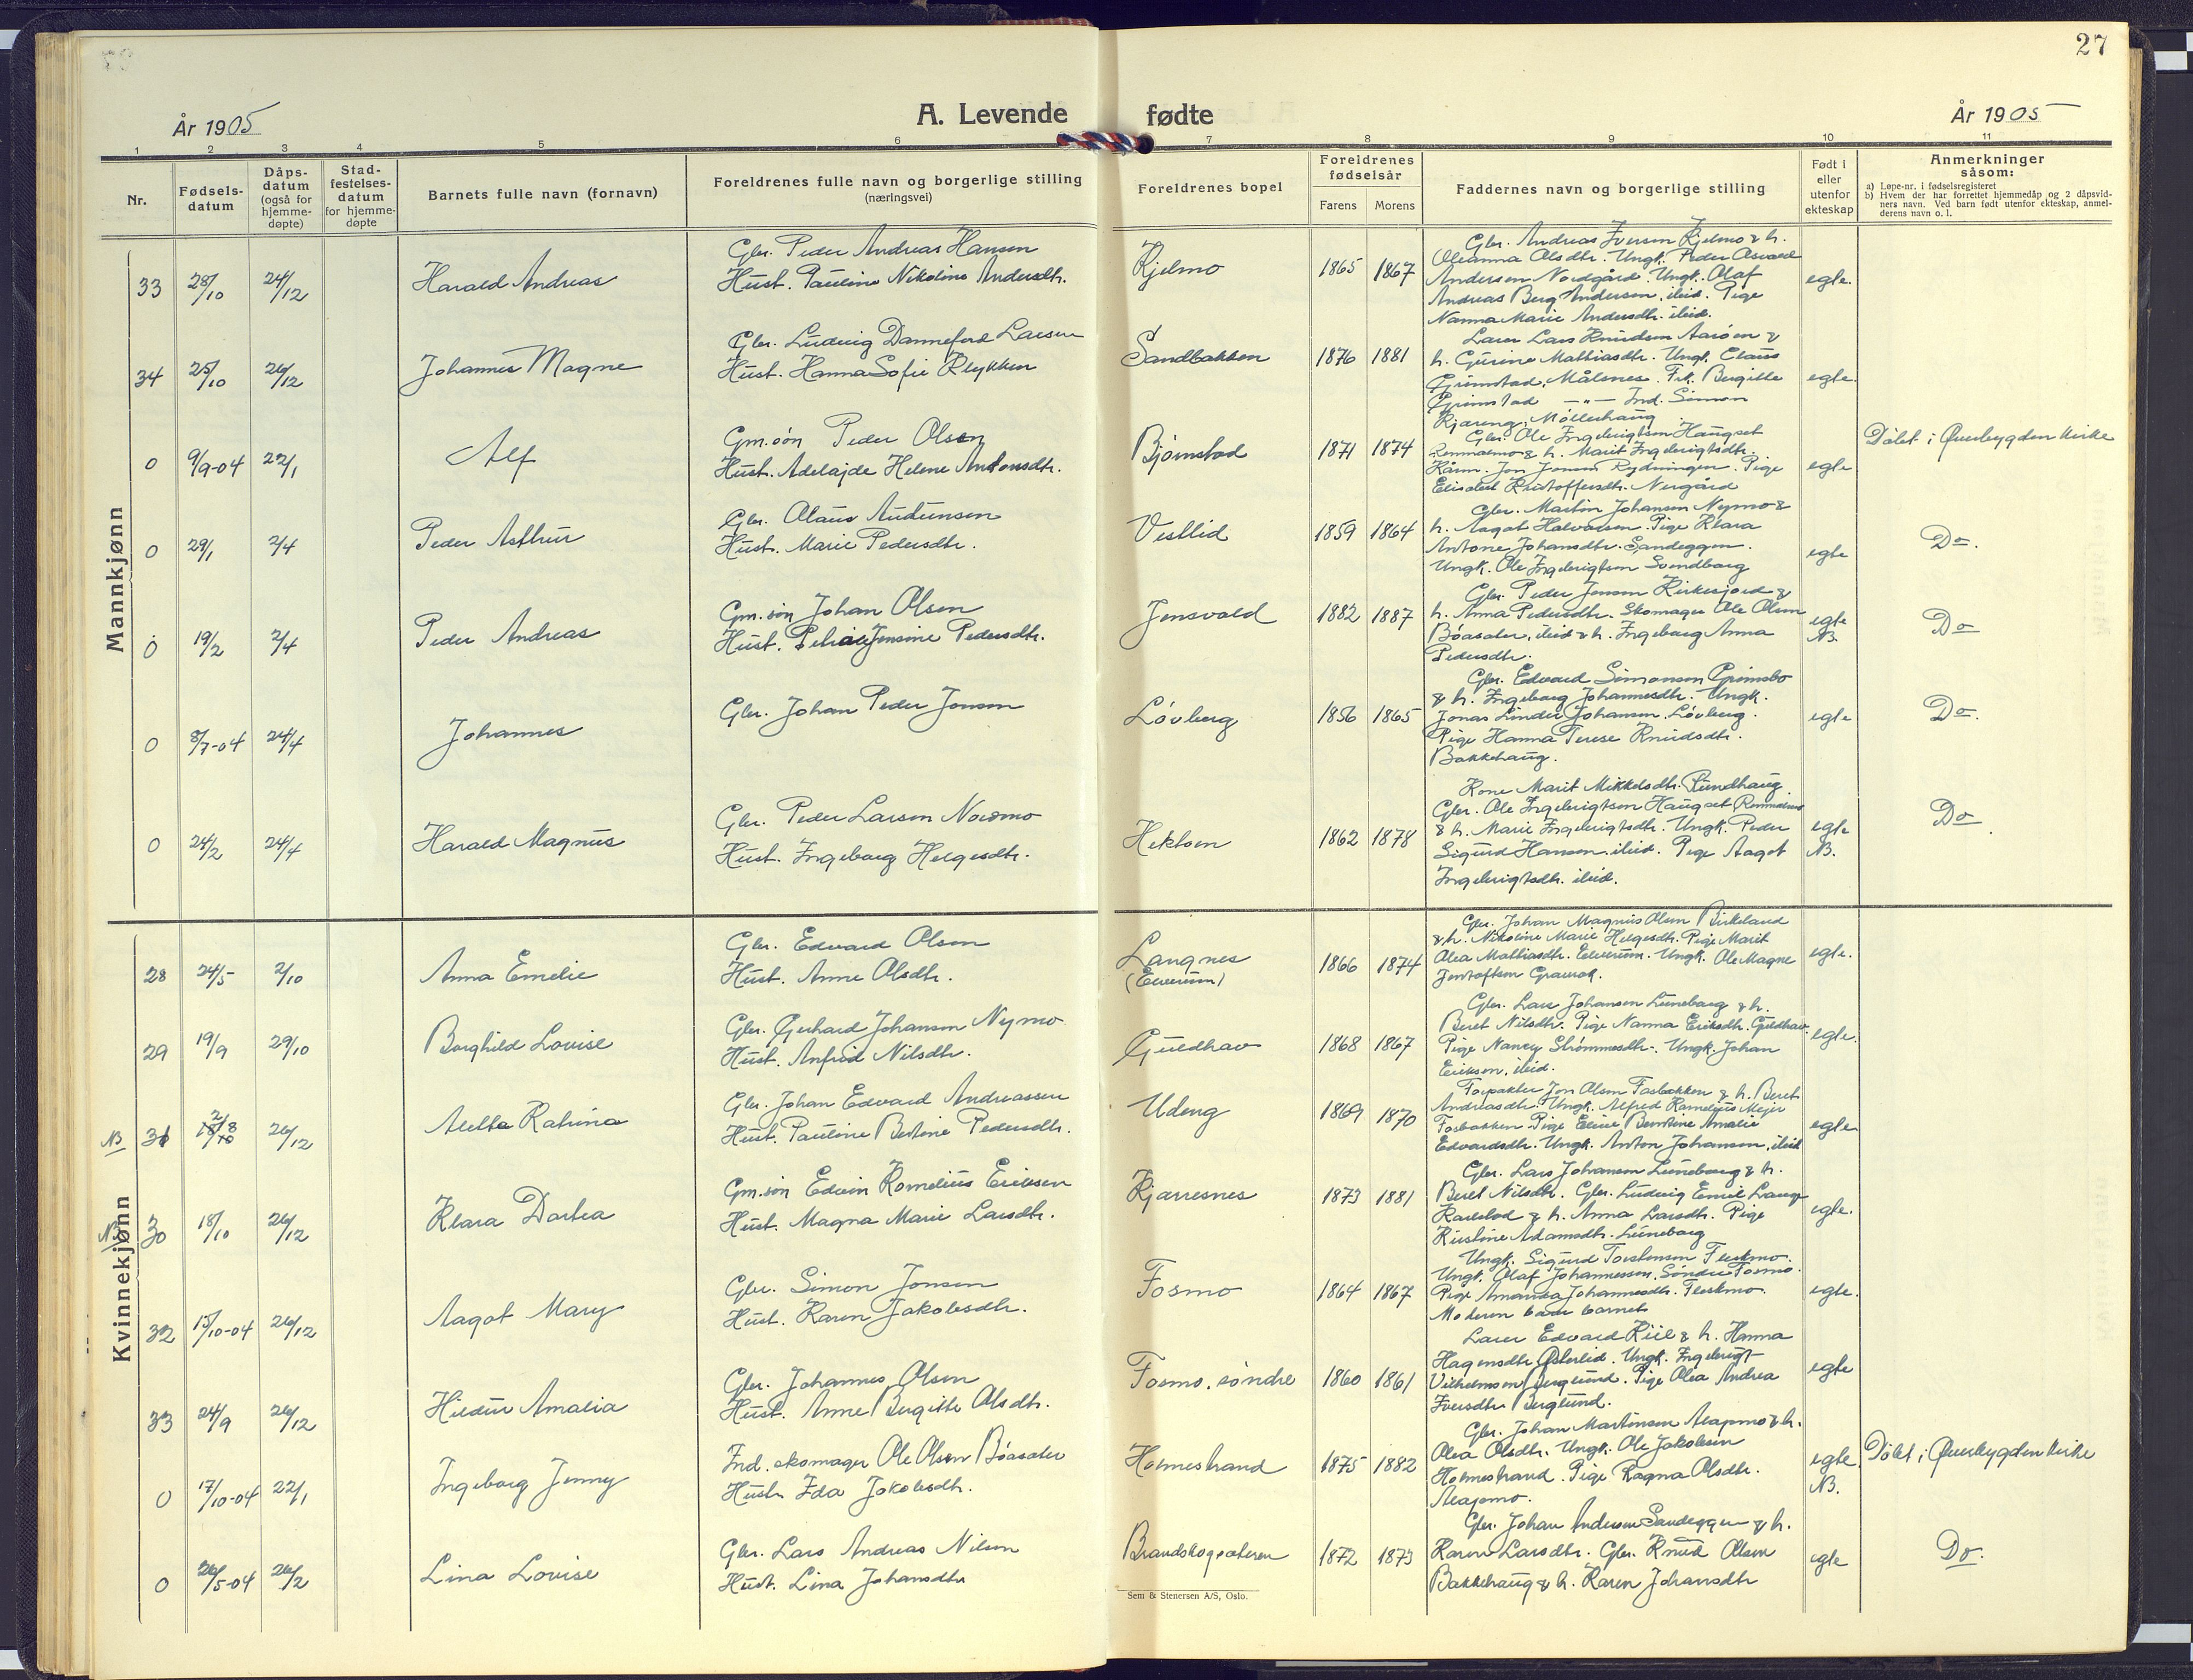 27
År 1905
A. Levende fødte
År 1905
1 2 3 4 5 6 7 8 9 10 11
Nr.
Fødsels-
datum
Dåps-
datum
(også for
hjemme-
døpte)
Stad-
festelses-
datum
for hjemme-
døpte
Barnets fulle navn (fornavn)
Foreldrenes fulle navn og borgerlige stilling
(næringsvei)
Foreldrenes bopel
Foreldrenes
fødselsår
Farens Morens
Faddernes navn og borgerlige stilling
Født i
eller
utenfor
ekteskap
Anmerkninger
såsom:
a) Løpe-nr. i fødselsregisteret
b) Hvem der har forrettet hjemmedåp og 2 dåpsvid-
ners navn. Ved barn født utenfor ekteskap, anmel-
derens navn o. l.
Mannkjønn
33 28/10 24/12 Harald Andreas
Gbr. Peder Andreas Hansen
Hust. Pauline Nikoline Andersdtr.
Kjelmo 1865 1867
Gbr. Andreas Iversen Kjelmo & h.
Oleanna Olsdtr. Ungk. Peder Osvald
Andersen Nordgård. Ungk. Olaf
Andreas Berg Andersen, ibid. Pige
Nanna Marie Andersdtr. ibid.
egte.
34 25/10 26/12 Johannes Magne
Gbr. Ludvig Danneford Larsen
Hust. Hanna Sofie Klykken
Sandbakken 1876 1881
Lærer Lars Knudsen Aarøen &
h. Gurine Mathiasdtr. Ungk. Claus
Grimstad, Målsnes. Frk. Bergitte
Grimstad —"— Ind. Simon
Kjæreng, Møllerhaug
egte.
0 9/9-04 22/1 Alf
Gm.søn Peder Olsen
Hust. Adelajde Helene Antonsdtr.
Bjørnstad 1871 1874
Gbr. Ole Ingebrigtsen Haugset
& h. Marit Ingebrigtsdtr.
Kårm. Jon Jonsen Rydningen. Pige
Elisabet Kristoffersdtr. Nergård
egte
Døbt i Øverbygden kirke
0 29/1 2/4 Peder Arthur
Gbr. Olaus Audunsen
Hust. Marie Pedersdtr.
Vestlid 1859 1864
Gbr. Martin Johansen Nymo &
h. Aagot Halvorsen. Pige Klara
Antone Johansdtr. Sandeggen.
Ungk. Ole Ingebrigtsen Svendborg
egte
Do.
0 19/2 2/4 Peder Andreas
Gm.søn Johan Olsen
Hust. Petrine Jensine Pedersdtr.
Jensvold 1882 1887
Gbr. Peder Jensen Kirkesjord &
h. Anna Pedersdtr. Skomager Ole Olsen
Bøasæter, ibid & h. Ingeborg Anna
Pedersdtr.
egte
NB.
Do
0 8/7-04 24/4 Johannes
Gbr. Johan Peder Jonsen
Løvberg 1856 1865
Gbr. Edvard Simonsen Grimsbo
& h. Ingeborg Johannesdtr. Ungk.
Jonas Linder Johansen. Løvberg.
Pige Hanna Terese Knudsdtr.
Bakkehaug.
egte
Do.
0 24/2 24/4 Harald Magnus
Gbr. Peder Larsen Nordmo
Hust. Ingeborg Helgesdtr.
Hektoen 1862 1878
Kone Marit Mikkelsdtr. Rundhaug.
Gbr. Ole Ingebrigtsen Haugset
& h. Marie Ingebrigtsdtr. Ungk. Peder
Sigurd Hansen, ibid. Pige Aagot
Ingebrigtsdtr. ibid.
egte
NB.
Do
Kvinnekjønn
28 24/5 2/10 Anna Emelie
Gbr. Edvard Olsen
Hust. Anne Olsdtr.
Langnes
(Elverum)
1866 1874
Gbr. Johan Magnus Olsen Birkeland
& h. Nikoline Marie Helgesdtr. Pige Marit
Olea Mathiasdtr. Elverum. Ungk. Ole Magne
Jentoftsen
egte.
29 19/9 29/10 Borghild Lovise
Gbr. Gerhard Johansen Nymo
Hust. Anfrid Nilsdtr.
Guldhav 1868 1867
Gbr. Lars Johansen Luneborg & h.
Beret Nilsdtr. Pige Nanna Eriksdtr. Guldhav.
Pige Nancy Strømmesdtr. Ungk. Johan
Eriksen, ibid.
egte.
NB 31 26/12 Aletta Katrina
Gbr. Johan Edvard Andreassen
Hust. Pauline Bertine Pedersdtr.
Udeng 1869 1870
Forpakter Jon Olsen Fosbakken & h. Beret
Andreasdtr. Ungk. Alfred Kornelius Mejer
Fosbakken. Pige Eline Berntine Amalie
Edvardsdtr. Ungk. Anton Johansen, ibid
egte
NB 30 18/10 26/12 Klara Dortea
Gm.søn Edvin Kornelius Eriksen
Hust. Magna Marie Larsdtr.
Kjærresnes 1873 1881
Gbr. Lars Johansen Luneborg & h.
Beret Nilsdtr. Gbr. Ludvig Emil Lange
Karlstad & h. Anna Larsdtr. Pige
Kristine Adamsdtr. Luneborg
egte.
32 15/10-04 26/12 Aagot Mary
Gbr. Simon Jensen
Hust. Karen Jakobsdtr.
Fosmo 1864 1867
Ungk. Sigurd Torstensen Fleskmo.
Ungk. Olaf Johannessen, Søndre Fosmo.
Pige Amanda Johannesdtr. Fleskmo.
Moderen bar barnet
egte.
33 24/9 26/12 Hildur Amalia
Gbr. Johannes Olsen
Hust. Anne Bergitte Olsdtr.
Fosmo, søndre 1860 1861
Lærer Edvard Kiil & h. Hanna
Hagensdtr. Østerlid. Ungk. Ingebrigt
Vilhelmsen Berglund. Pige Olea Andrea
Iversdtr. Berglund.
egte
0 17/10-04 22/1 Ingeborg Jenny
Ind. skomager Ole Olsen Bøasæter
Hust. Ida Jakobsdtr.
Holmestrand 1875 1882
Gbr. Johan Martinsen Alapmo & h.
Olea Olsdtr. Ungk. Ole Jakobsen
Holmestrand. Pige Ragna Olsdtr.
Alapmo.
egte
NB.
Døbt i Øverbygden kirke
0 26/5-04 26/2 Lina Lovise
Gbr. Lars Andreas Nilsen
Hust. Lina Johansdtr
Brandskogsæteren 1872 1873
Gbr. Johan Andersen Sandeggen & h.
Karen Larsdtr. Gbr. Knud Olsen
Bakkehaug & h. Karen Johansdtr
egte
Do.
Sem & Stenersen A/S, Oslo.